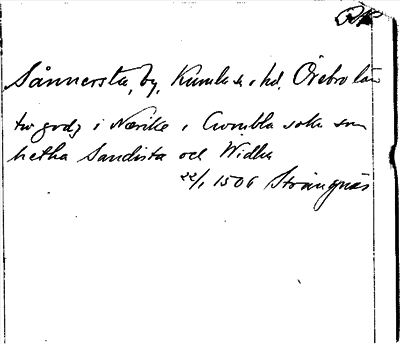 Sånnersta, by, Kumla s. o. hd. Örebro län
tw godz i Nærike i Cwmbla sokn som
hetha Sandista och Widha
22/1 1506 Strängnäs